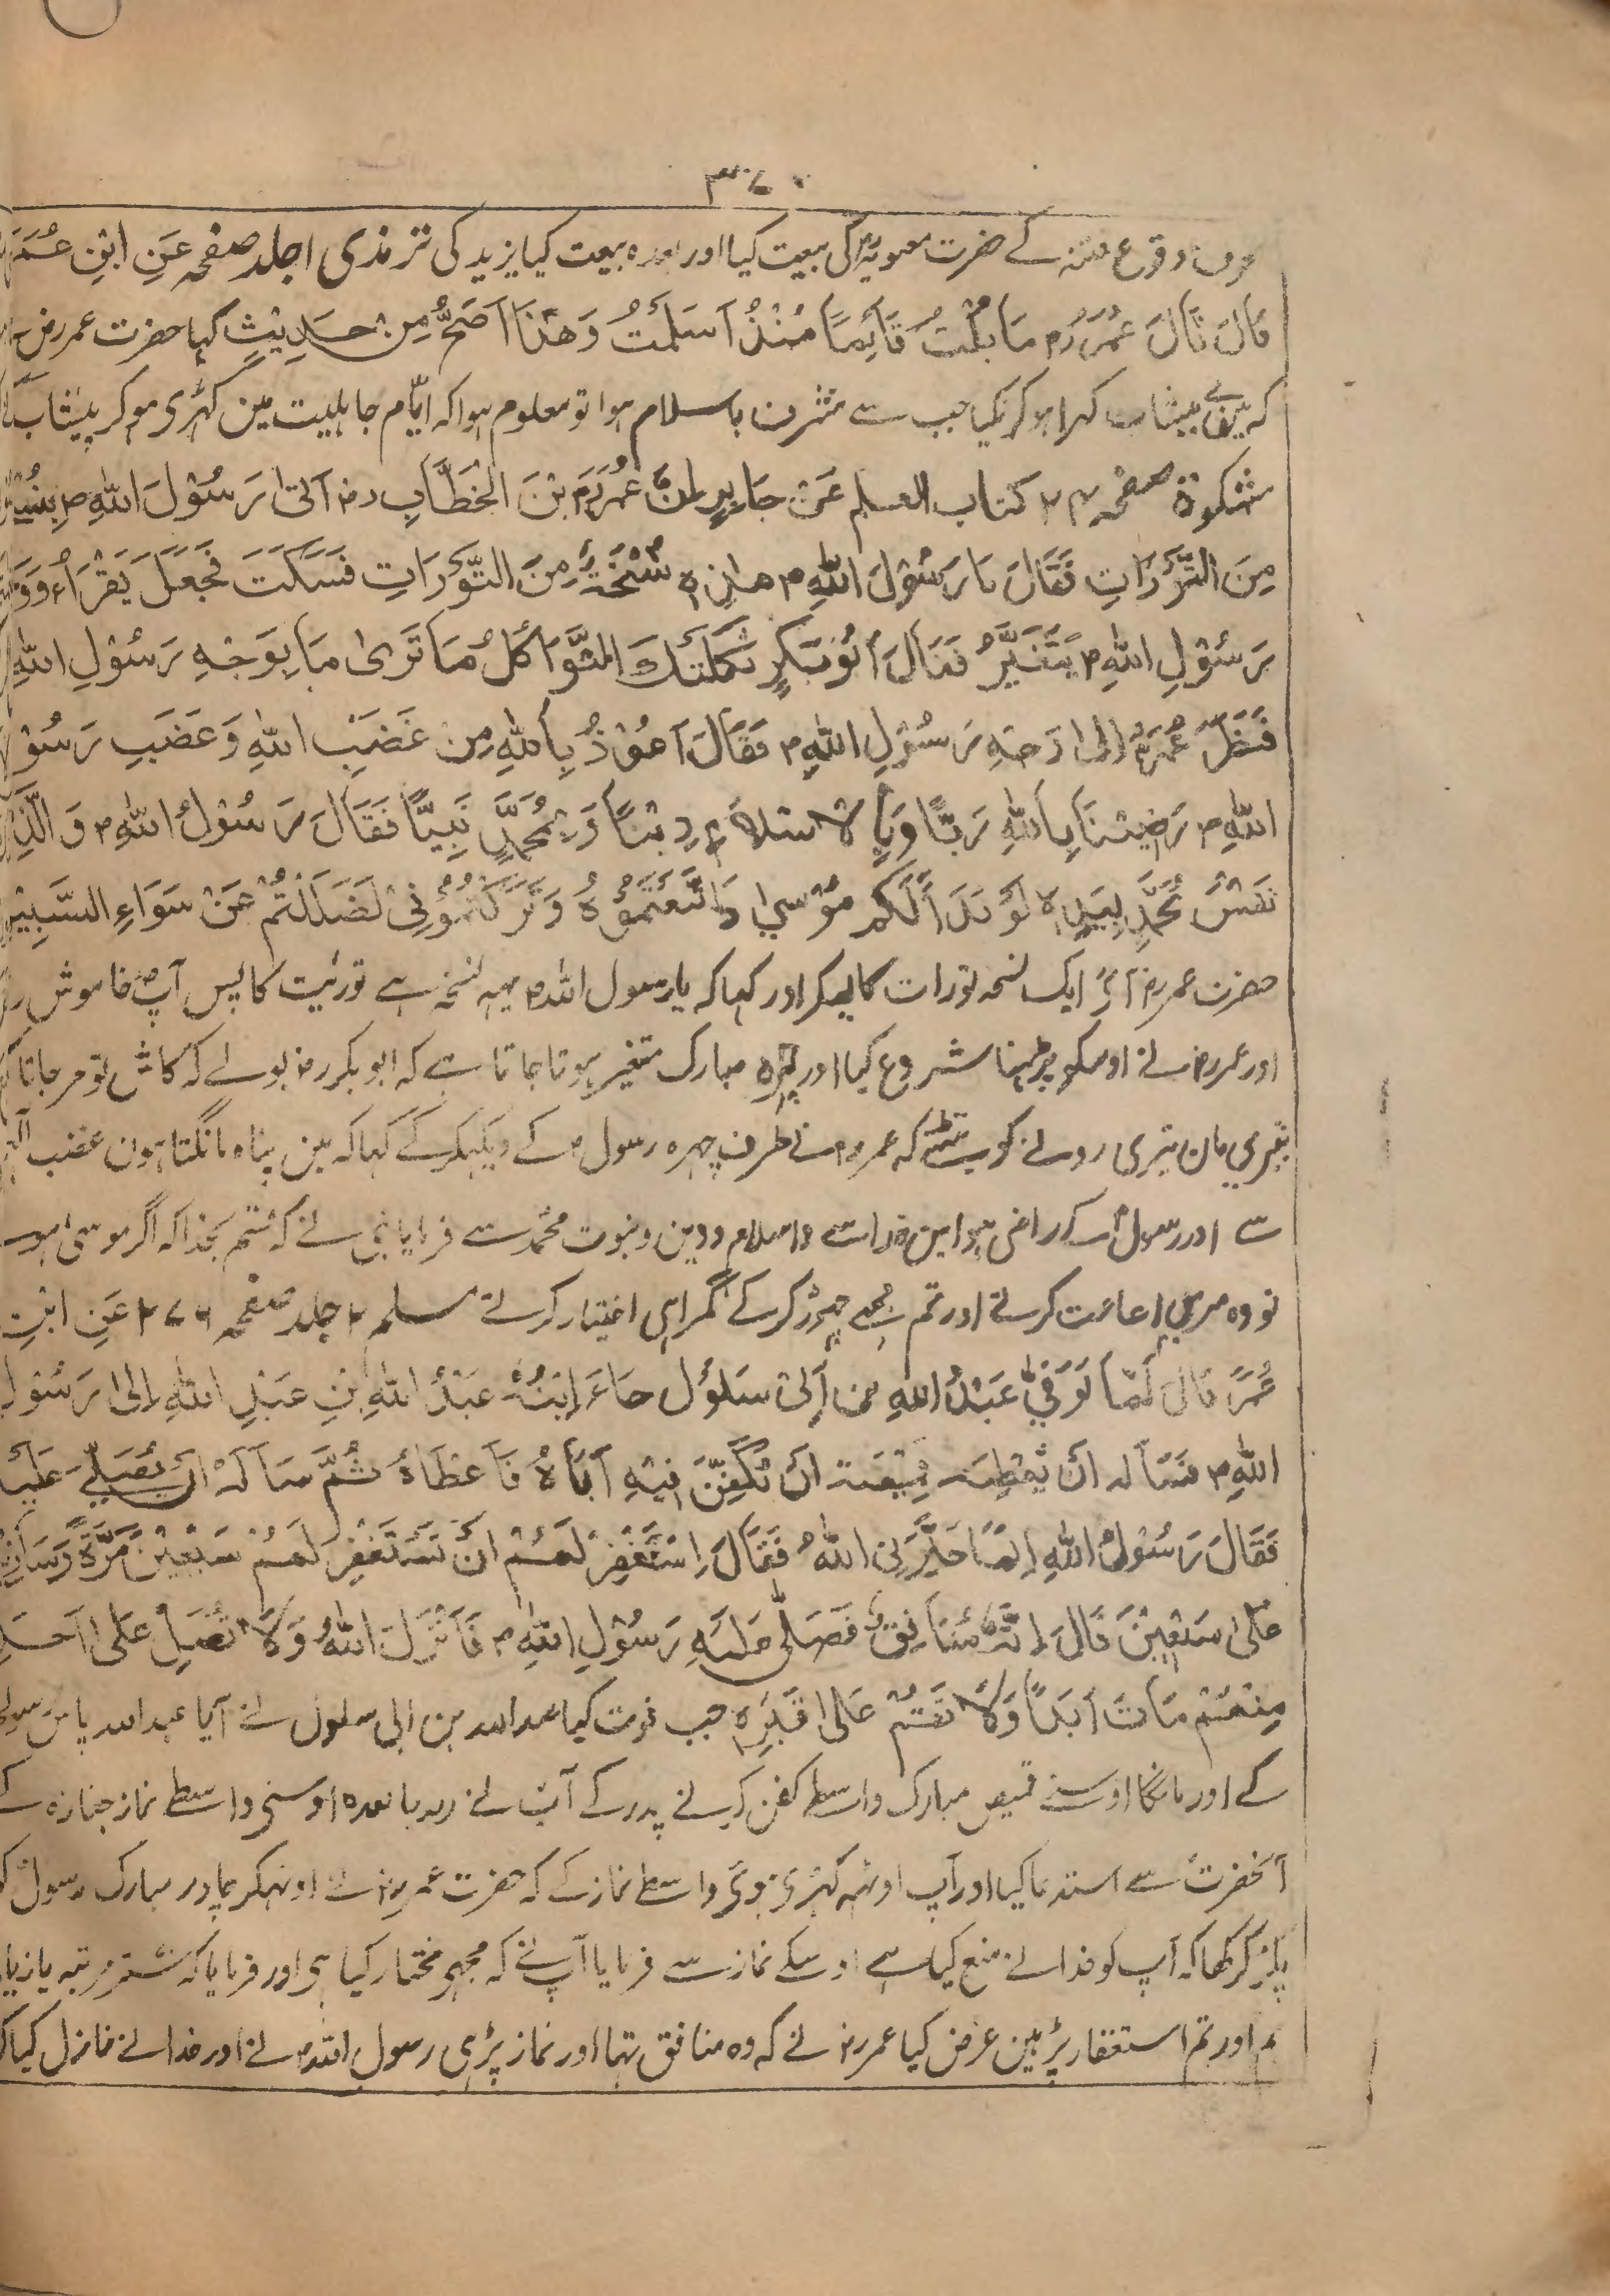 ۳۷۰
وقوع فتنہ کے حضرت معویہؓ کی بیعت کیا اور بعدہ بیعت کیا یزید کی ترمذی ا جلد صفحہ عَنِ ابْنِ عُمَرَ
قَالَ قَالَ عُمَرُ رم مَا بُلْتُ قَآئِمًا مُنْذُ اَسْلَمْتُ وَهٰذَا اَصَحُّ مِنْ حَدِيْثٍ کہا حضرت عمر رض
کہ میں نے پیشاب کہرا ہوکر نکیا جب سے مشرف باسلام ہوا تو معلوم ہوا کہ ایّام جاہلیت مین کہڑی ہوکر پیشاب
مشکوة صفحہ ۲۴ کتاب العلم عَنْ جَابِرٍ اَنَّ عُمَرَ بْنَ الْخَطَّابِ رض اَتٰى رَسُوْلَ اللّٰهِ م بِنُسْخَةٍ
مِنَ التَّوْرَاتِ فَقَالَ يَا رَسُوْلَ اللّٰهِ م هٰذِهٖ نُسْخَةٌ مِنَ التَّوْرَاتِ فَسَكَتَ فَجَعَلَ يَقْرَاُ وَوَ
رَسُوْلِ اللّٰهِ م يَتَغَيَّرُ فَقَالَ اَبُوْبَكْرٍ ثَكَلَتْكَ الثَّوَاكِلُ مَا تَرٰى مَا بِوَجْهِ رَسُوْلِ اللّٰهِ
فَنَظَرَ عُمَرُ اِلٰى وَجْهِ رَسُوْلِ اللّٰهِ م فَقَالَ اَعُوْذُ بِاللّٰهِ مِنْ غَضَبِ اللّٰهِ وَغَضَبِ رَسُوْ
اللّٰهِ م رَضِيْنَا بِاللّٰهِ رَبًّا وَبِالْاِسْلَامِ دِيْنًا وَبِمُحَمَّدٍ نَبِيًّا فَقَالَ رَسُوْلُ اللّٰهِ م وَالَّذِيْ
نَفْسُ مُحَمَّدٍ بِيَدِهٖ لَوْ بَدَا لَكُمْ مُوْسٰى فَاتَّبَعْتُمُوْهُ وَتَرَكْتُمُوْنِيْ لَضَلَلْتُمْ عَنْ سَوَاءِ السَّبِيْلِ
حضرت عمر رض آئے ایک نسخہ تورات کا لیکر اور کہا کہ یا رسول اللہ م یہہ نسخہ ہے توریت کا پس آپ خاموش
اور عمر رض نے اوسکو پڑہنا شروع کیا اور چہرہ مبارک متغیر ہوتا جاتا ہے کہ ابو بکر رض بولے کہ کاش تو مرجاتا
تیری مان تیری رونے کو بیٹھتے کہ عمر رم نے طرف چہرہ رسول م کے دیکہکر کے کہا کہ مین پناہ مانگتا ہون غضب
سے اور رسول کے راضی ہوا مین خدا سے واسلام ودین ونبوت محمدؐ سے فرمایا نبی نے کہ قسم بخدا کہ اگر موسیٰ
تو وہ مری اعانت کرتے اور تم مجھے چھوڑ کرکے گمراہی اختیار کرتے مسلم ۲ جلد صفحہ ۲۷۶ عَنِ ابْنِ
عُمَرَ قَالَ لَمَّا تُوُفِّيَ عَبْدُ اللّٰهِ بن اُبَيِّ سَلُوْل جَاءَ اِبْنُهٗ عَبْدُ اللّٰهِ بْنِ عَبْدِ اللّٰهِ اِلٰى رَسُوْلِ
اللّٰهِ م فَسَاَلَهٗ اَنْ يُعْطِيَهٗ قَمِيْصَهٗ اَنْ تُكَفِّنَ فِيْهِ اَبَاهُ فَاَعْطَاهُ ثُمَّ سَاَلَهٗ اَنْ يُصَلِّيَ عَلَيْهِ
فَقَالَ رَسُوْلُ اللّٰهِ اِنَّمَا خَيَّرَنِى اللّٰهُ فَقَالَ اِسْتَغْفِرْ لَهُمْ اَنْ تَسْتَغْفِرْ لَهُمْ سَبْعِيْنَ مَرَّةً وَسَاَزِيْدُ
عَلٰى سَبْعِيْنَ قَالَ اِنَّهٗ مُنَافِقٌ فَصَلّٰى عَلَيْهِ رَسُوْلِ اللّٰهِ م فَاَنْزَلَ اللّٰهُ وَلَا تُصَلِّ عَلٰى اَحَدٍ
مِنْهُمْ مَاتَ اَبَدًا وَلَا تَقُمْ عَلٰى قَبْرِهٖ جب فوت کیا عبد اللہ بن ابی سلول نے آیا عبد اللہ پاس رسول
کے اور مانگا اوسنے قمیص مبارک واسطے کفن کرنے پدر کے آپ نے دیدیا بعدہ اوسنی واسطے نماز جنازہ کے
آنحضرت سے استدعا کیا اور آپ اوٹہہ کہڑی ہوئی واسطے نماز کے کہ حضرت عمر رض نے اوٹہکر چادر مبارک رسول
پکڑ کر کہا کہ آپ کو خدا نے منع کیا ہے اوسکے نماز سے فرمایا آپ نے کہ مجہی مختار کیا ہی اور فرمایا کہ ستر مرتبہ یا زیا
اور تم استغفار پڑہین عرض کیا عمر رض نے کہ وہ منافق تہا اور نماز پڑہی رسول اللہ م نے اور خدا نے نازل کیا